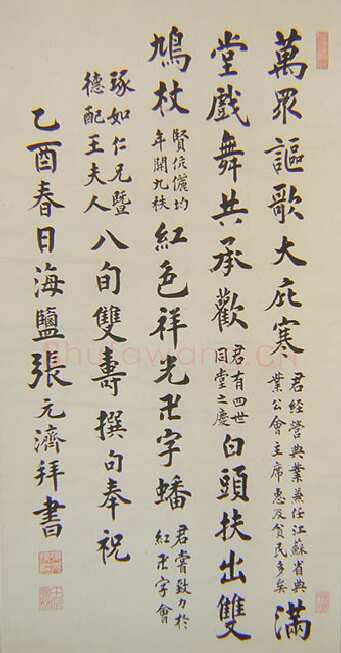 萬眾謳歌大庇寒君經營典業兼任江蘇省典業公會主席惠及貧民多矣滿
堂戲舞共承歡君有四世同堂之慶白頭扶出雙
鳩杖賢伉儷均年開九秩紅色祥光卍字蟠君嘗致力於紅卍字會
琢如仁兄暨德配王夫人八旬雙壽撰句奉祝
乙酉春日海鹽張元濟拜書